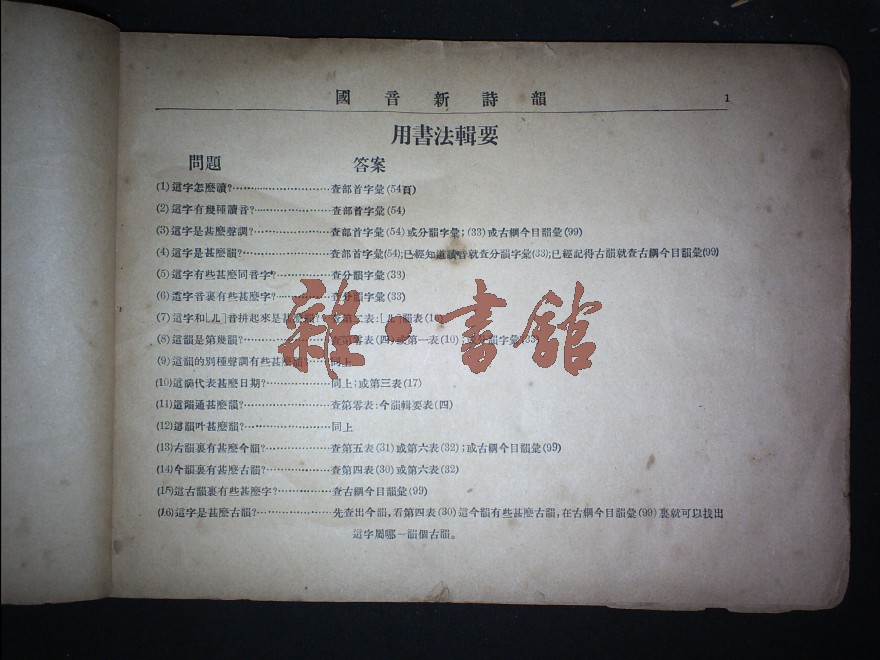 國音新詩韻 1
用書法輯要
問題 答案
(1) 這字怎麼讀?……………………查部首字彙(54頁)
(2) 這字有幾種讀音?………………查部首字彙(54)
(3) 這字是甚麼聲調?………………查部首字彙(54)或分韻字彙;(33)或古綱今目韻彙(99)
(4) 這字是甚麼韻?…………………查部首字彙(54);已經知道讀音就查分韻字彙(33);已經記得古韻就查古綱今目韻彙(99)
(5) 這字有些甚麼同音字?…………查分韻字彙(33)
(6) 這字音裏有些甚麼字?…………查分韻字彙(33)
(7) 這字和[ㄦ]音拼起來是甚麼韻?查第二表:[ㄦ]韻表(16)
(8) 這韻是第幾韻?…………………查第零表(四)或第一表(10);或分韻字彙(33)
(9) 這韻的別種聲調有些甚麼韻?……同上
(10) 這韻代表甚麼日期?……………同上;或第三表(17)
(11) 這韻通甚麼韻?…………………查第零表:今韻輯要表(四)
(12) 這韻叶甚麼韻?…………………同上
(13) 古韻裏有甚麼今韻?……………查第五表(31)或第六表(32);或古綱今目韻彙(99)
(14) 今韻裏有甚麼古韻?……………查第四表(30)或第六表(32)
(15) 這古韻裏有些甚麼字?…………查古綱今目韻彙(99)
(16) 這字是甚麼古韻?………………先查出今韻,看第四表(30)這今韻有些甚麼古韻,在古綱今目韻彙(99)裏就可以找出
這字屬哪一韻個古韻。
雜·書館